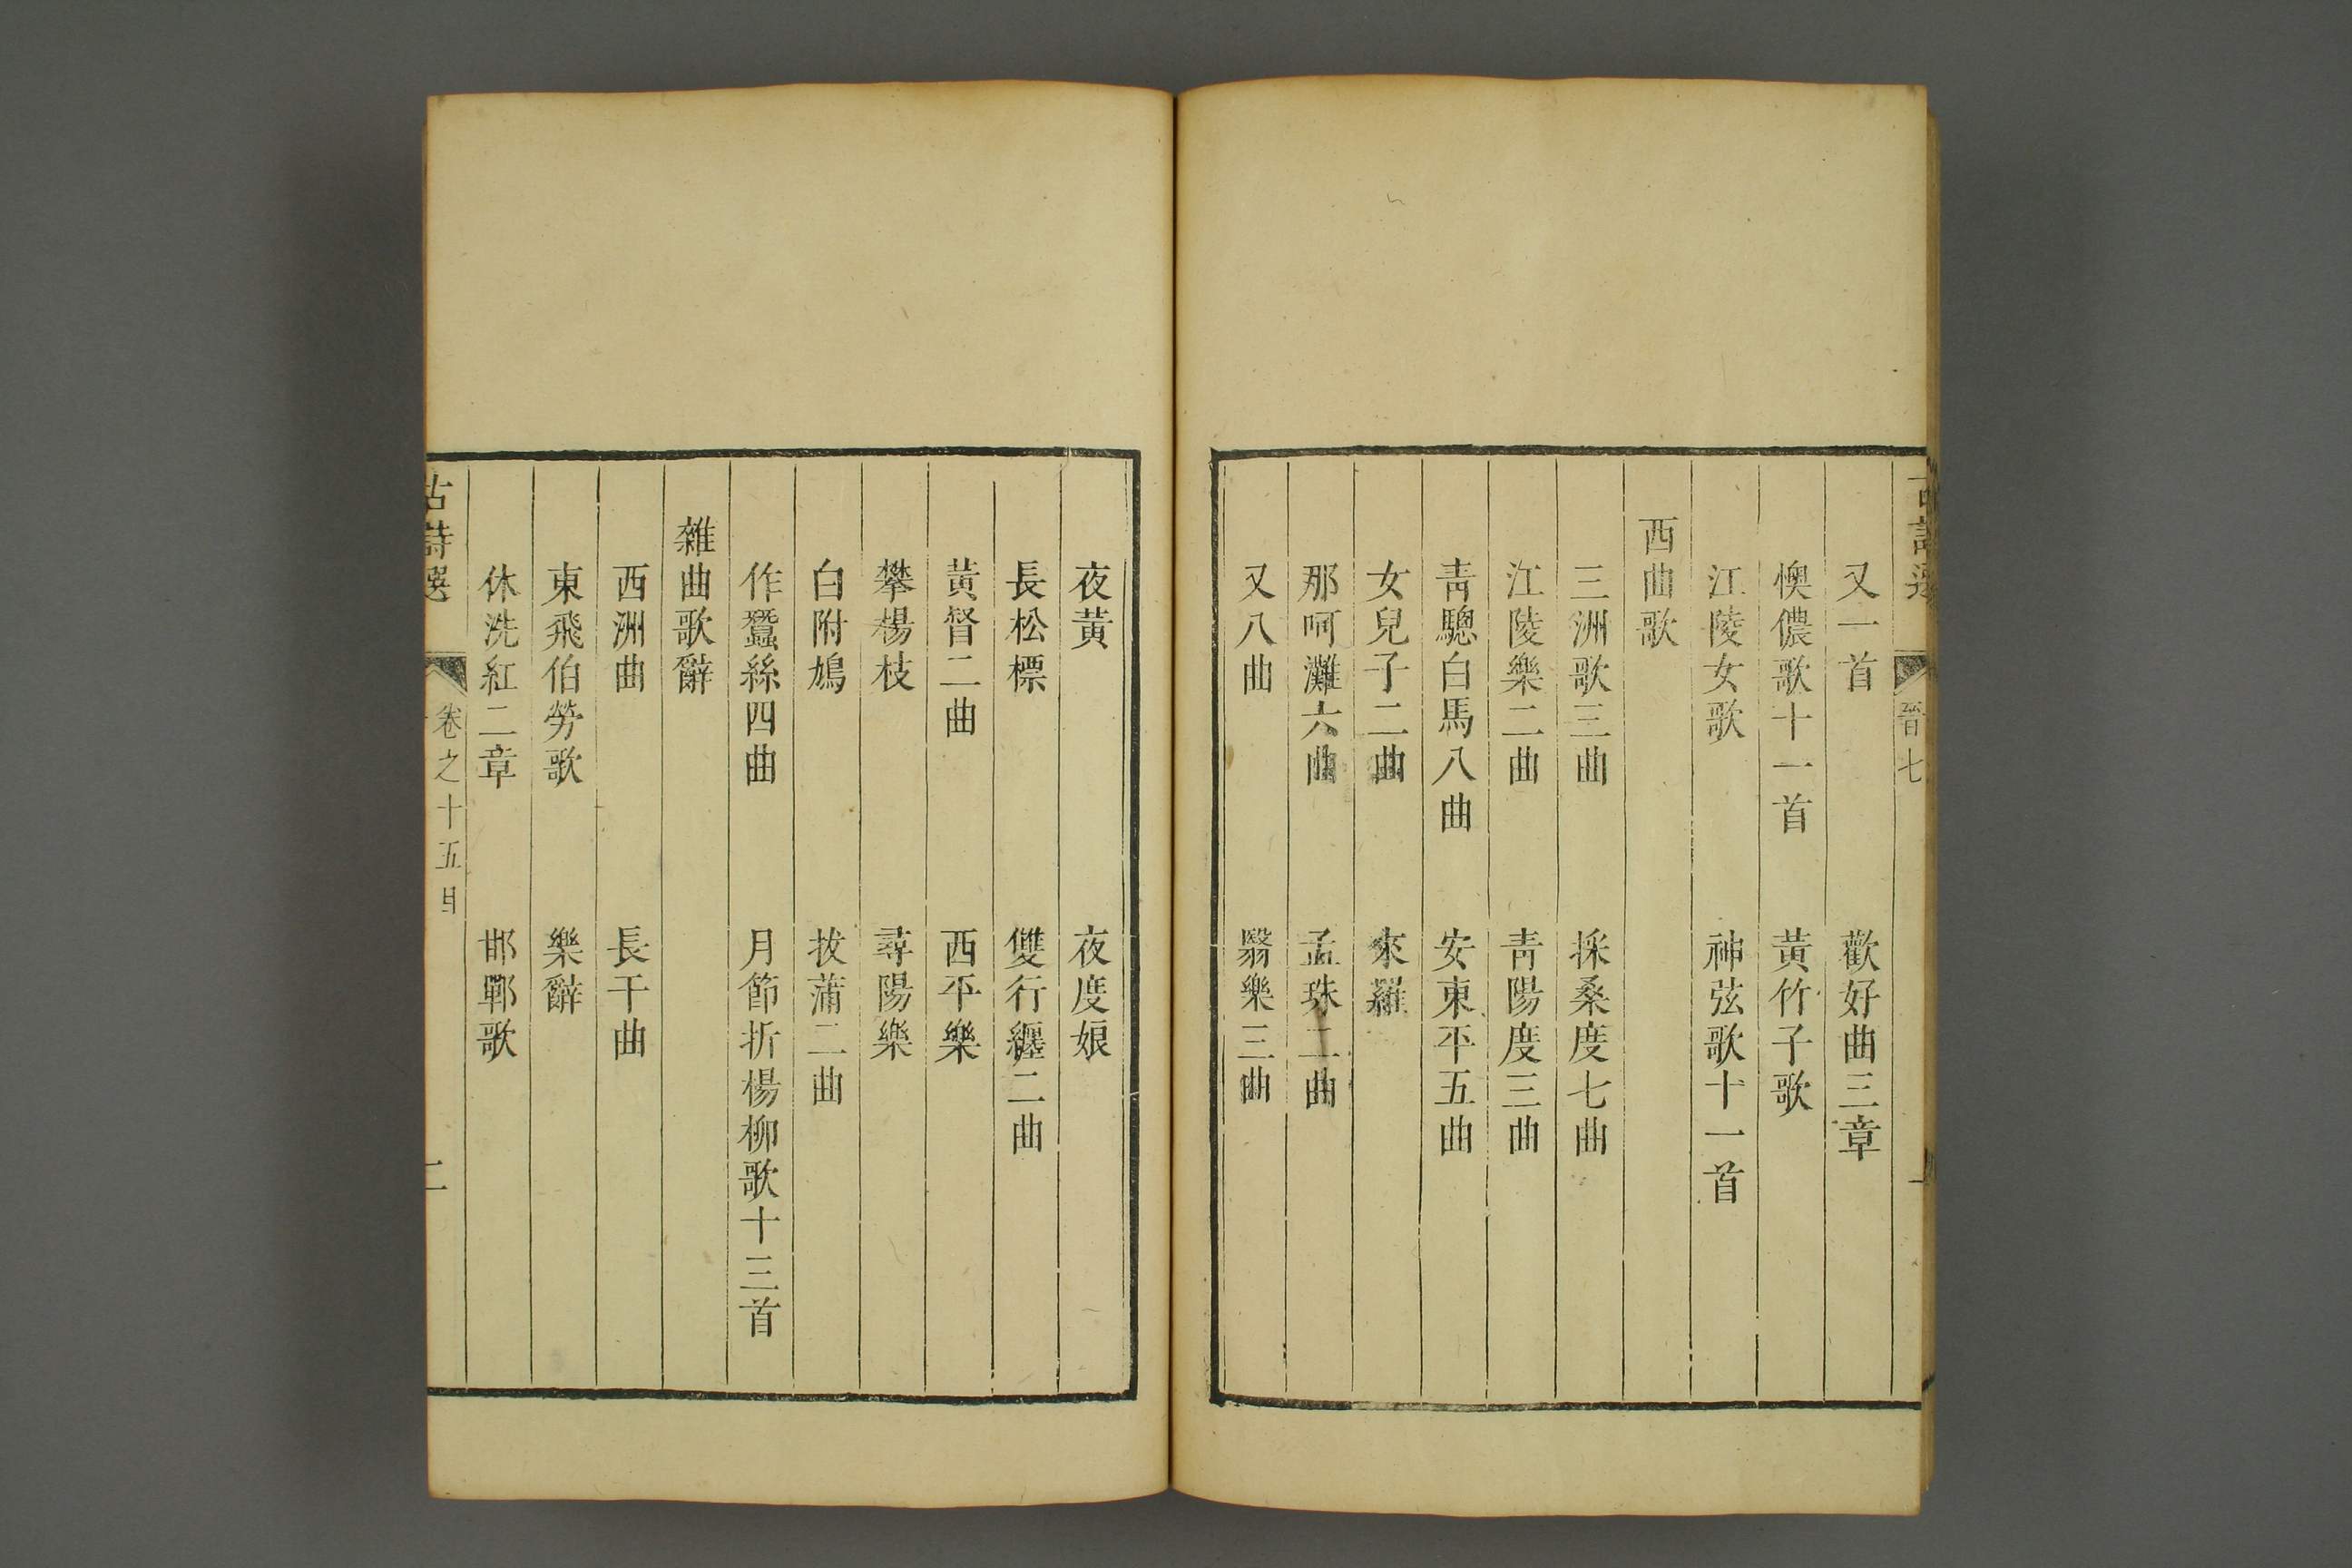 晉七
又一首　歡好曲三章
懊儂歌十一首　黃竹子歌
江陵女歌　神弦歌十一首
西曲歌
三洲歌三曲　採桑度七曲
江陵樂二曲　青陽度三曲
青驄白馬八曲　安東平五曲
女兒子二曲　來羅
那呵灘六曲　孟珠二曲
又八曲　翳樂三曲
夜黃　夜度娘
長松標　雙行纏二曲
黃督二曲　西平樂
攀楊枝　尋陽樂
白附鳩　拔蒲二曲
作蠶絲四曲　月節折楊柳歌十三首
雜曲歌辭
西洲曲　長干曲
東飛伯勞歌　樂辭
休洗紅二章　邯鄲歌
古詩選　卷之十五目　二